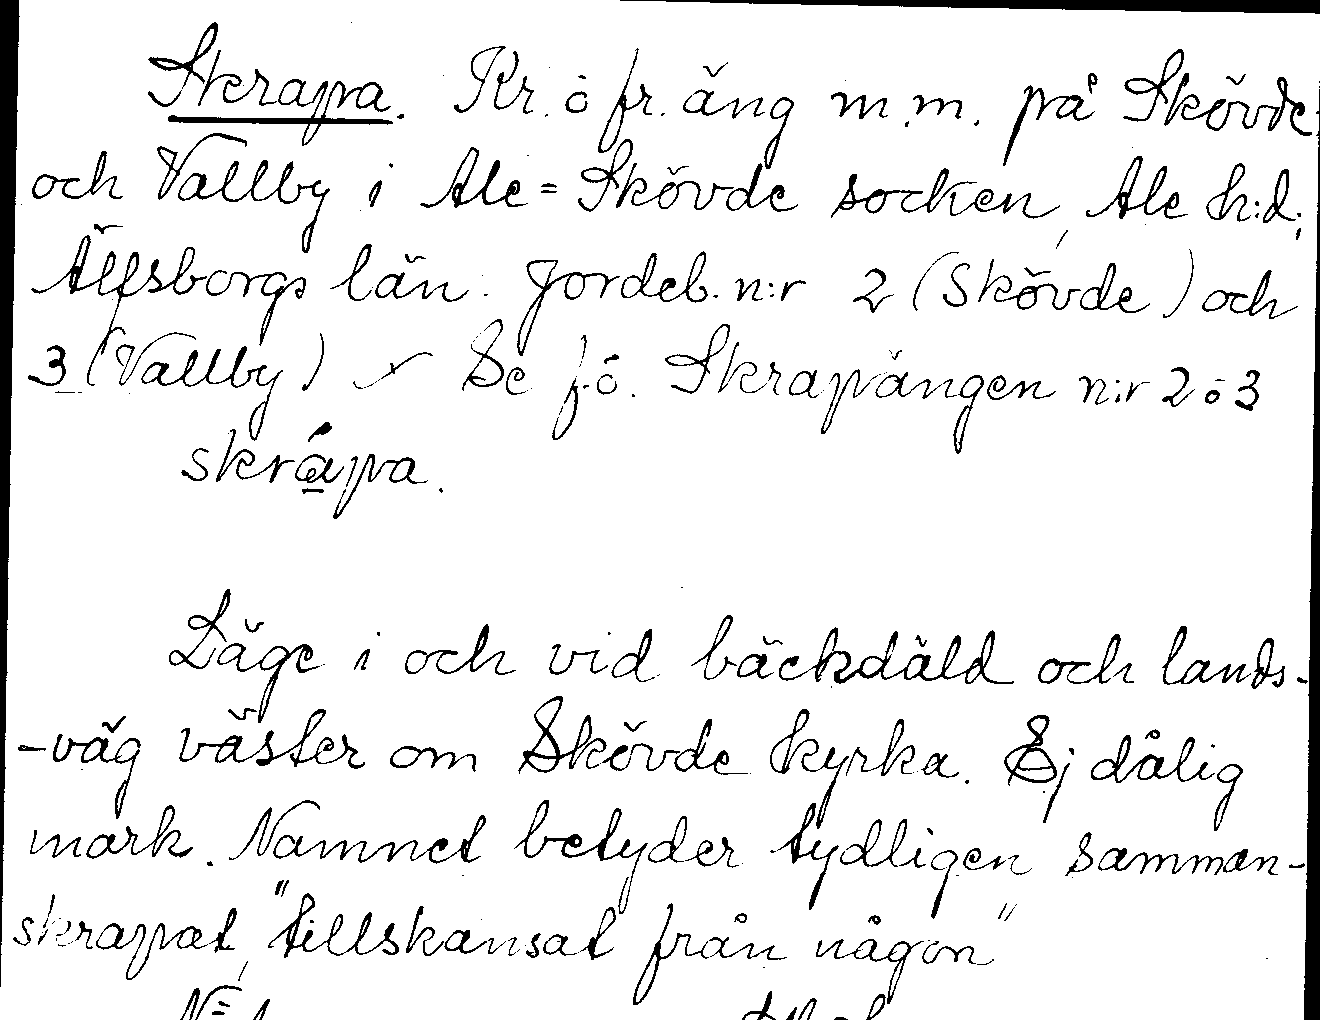 Skrapa. Kr. o fr. äng m.m. på Skövde
och Vallby i Ale=Skövde socken, Ale h:d;
Älfsborgs län. Jordeb. n:r 2 (Skövde) och
3 (Vallby) Se f.ö. Skrapängen n:r 2 o 3
skrápa.
Läge i och vid bäckdäld och lands-
-väg väster om Skövde kyrka. Ej dålig
mark. Namnet betyder tydligen samman-
skrapat, "tillskansat från någon"